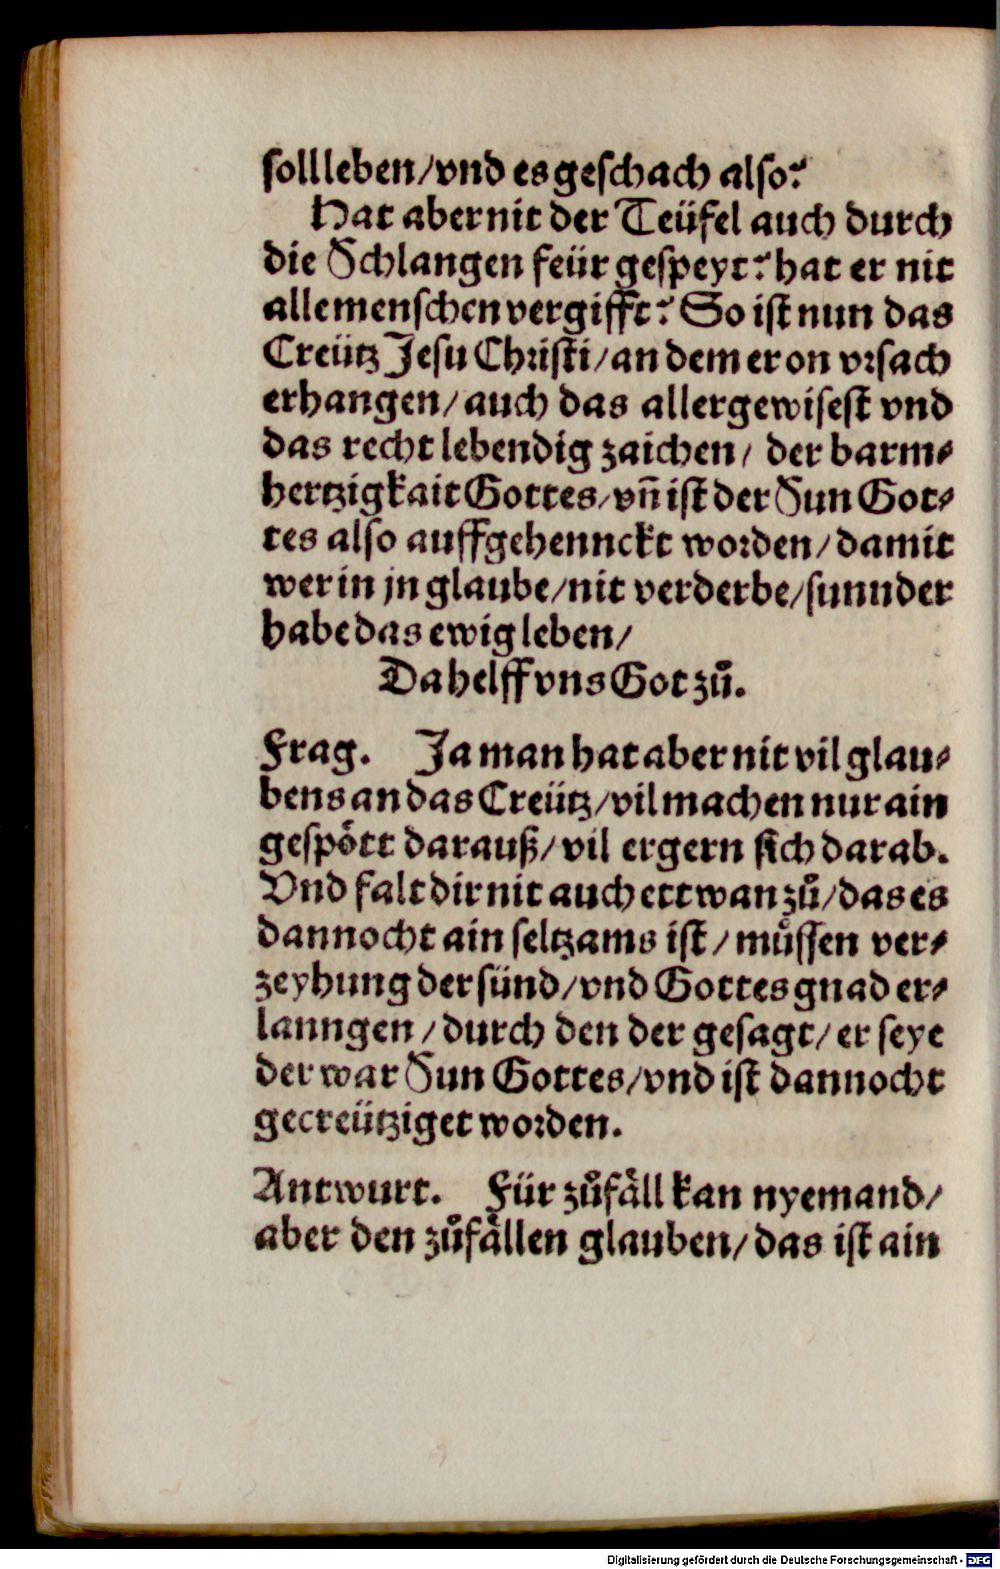 soll leben/ vnd es geschach also?
Hat aber nit der Teüfel auch durch
die Schlangen feür gespeyt? hat er nit
alle menschen vergifft? So ist nun das
Creütz Jesu Christi/ an dem er on vrsach
erhangen/ auch das allergewisest vnd
das recht lebendig zaichen/ der barm⸗
hertzigkait Gottes/ vñ ist der Sun Got⸗
tes also auffgehennckt worden/ damit
wer in jn glaube/ nit verderbe/ sunnder
habe das ewig leben/
Da helff vns Got zů.
Frag. Ja man hat aber nit vil glau⸗
bens an das Creütz/ vil machen nur ain
gespött darauß/ vil ergern sich darab.
Vnd falt dir nit auch ettwan zů/ das es
dannocht ain seltzams ist/ můssen ver⸗
zeyhung der sünd/ vnd Gottes gnad er⸗
lanngen/ durch den der gesagt/ er seye
der war Sun Gottes/ vnd ist dannocht
gecreütziget worden.
Antwurt. Für zůfäll kan nyemand/
aber den zůfällen glauben/ das ist ain
Digitalisierung gefördert durch die Deutsche Forschungsgemeinschaft - DFG